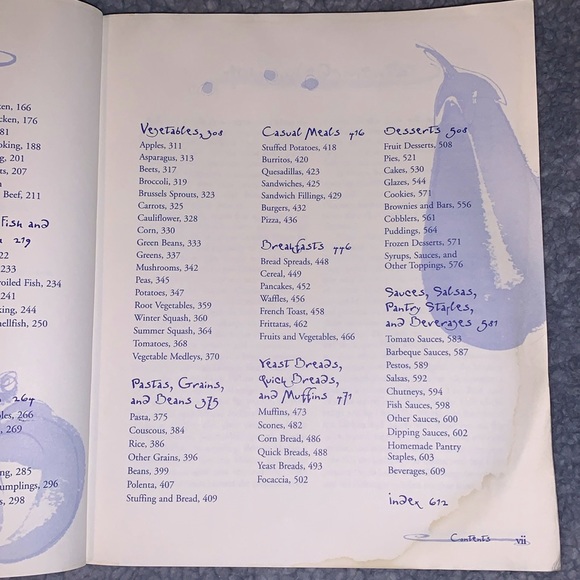 ken, 166
cken, 176
81
oking, 188
g, 201
ts, 207
Beef, 211
Fish and
219
22
233
roiled Fish, 234
241
king, 244
hellfish, 250
264
les, 266
, 269
ng, 285
umplings, 296
s, 298
Vegetables, 308
Apples, 311
Asparagus, 313
Beets, 317
Broccoli, 319
Brussels Sprouts, 323
Carrots, 325
Cauliflower, 328
Corn, 330
Green Beans, 333
Greens, 337
Mushrooms, 342
Peas, 345
Potatoes, 347
Root Vegetables, 359
Winter Squash, 360
Summer Squash, 364
Tomatoes, 368
Vegetable Medleys, 370
Pastas, Grains,
and Beans 375
Pasta, 375
Couscous, 384
Rice, 386
Other Grains, 396
Beans, 399
Polenta, 407
Stuffing and Bread, 409
Casual Meals 416
Stuffed Potatoes, 418
Burritos, 420
Quesadillas, 423
Sandwiches, 425
Sandwich Fillings, 429
Burgers, 432
Pizza, 436
Breakfasts 446
Bread Spreads, 448
Cereal, 449
Pancakes, 452
Waffles, 456
French Toast, 458
Frittatas, 462
Fruits and Vegetables, 466
Yeast Breads,
Quick Breads,
and Muffins 471
Muffins, 473
Scones, 482
Corn Bread, 486
Quick Breads, 488
Yeast Breads, 493
Focaccia, 502
Desserts 508
Fruit Desserts, 508
Pies, 521
Cakes, 530
Glazes, 544
Cookies, 571
Brownies and Bars, 556
Cobblers, 561
Puddings, 564
Frozen Desserts, 571
Syrups, Sauces, and
Other Toppings, 576
Sauces, Salsas,
Pantry Staples,
and Beverages 581
Tomato Sauces, 583
Barbeque Sauces, 587
Pestos, 589
Salsas, 592
Chutneys, 594
Fish Sauces, 598
Other Sauces, 600
Dipping Sauces, 602
Homemade Pantry
Staples, 603
Beverages, 609
index 612
Contents vii